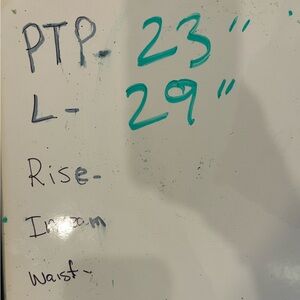 PTP- 23"
L- 29"
Rise-
Inseam
Waist-